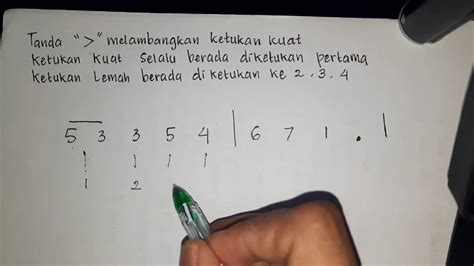 Tanda ">" melambangkan ketukan kuat
Ketukan kuat selalu berada diketukan pertama
Ketukan Lemah berada di ketukan ke 2, 3, 4
5 3 3 5 4 | 6 7 1 . |
1 1 1 1
1 2